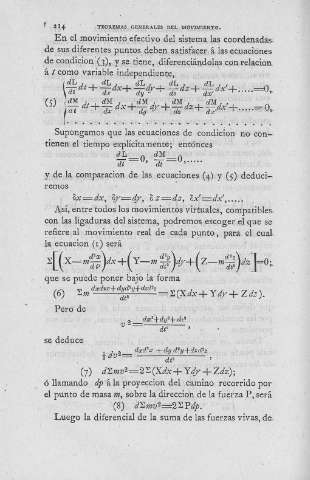 214 TEOREMAS GENERALES DEL MOVIMIENTO.
En el movimiento efectivo del sistema las coordenadas
de sus diferentes puntos deben satisfacer á las ecuaciones
de condicion (3), y se tiene, diferenciándolas con relacion
á t como variable independiente,
dL/dt dt + dL/dx dx + dL/dy dy + dL/dz dz + dL/dx' dx' + ..... = 0,
(5) dM/dt dt + dM/dx dx + dM/dy dy + dM/dz dz + dM/dx' dx' + ..... = 0,
. . . . . . . . . . . . . . . . . . . .
Supongamos que las ecuaciones de condicion no con-
tienen el tiempo explícitamente; entónces
dL/dt = 0, dM/dt = 0,.....
y de la comparacion de las ecuaciones (4) y (5) deduci-
remos
δx = dx, δy = dy, δz = dz, δx' = dx',.....
Así, entre todos los movimientos virtuales, compatibles
con las ligaduras del sistema, podremos escoger el que se
refiere al movimiento real de cada punto, para el cual
la ecuacion (1) será
Σ[(X − m d²x/dt²)dx + (Y − m d²y/dt²)dy + (Z − m d²z/dt²)dz] = 0;
que se puede poner bajo la forma
(6) Σm (dxd²x + dyd²y + dzd²z)/dt² = Σ(Xdx + Ydy + Zdz).
Pero de
v² = (dx² + dy² + dz²)/dt²,
se deduce
½dv² = (dxd²x + dyd²y + dzd²z)/dt²,
(7) dΣmv² = 2Σ(Xdx + Ydy + Zdz);
ó llamando dp á la proyeccion del camino recorrido por
el punto de masa m, sobre la direccion de la fuerza P, será
(8) dΣmv² = 2ΣPdp.
Luego la diferencial de la suma de las fuerzas vivas, de